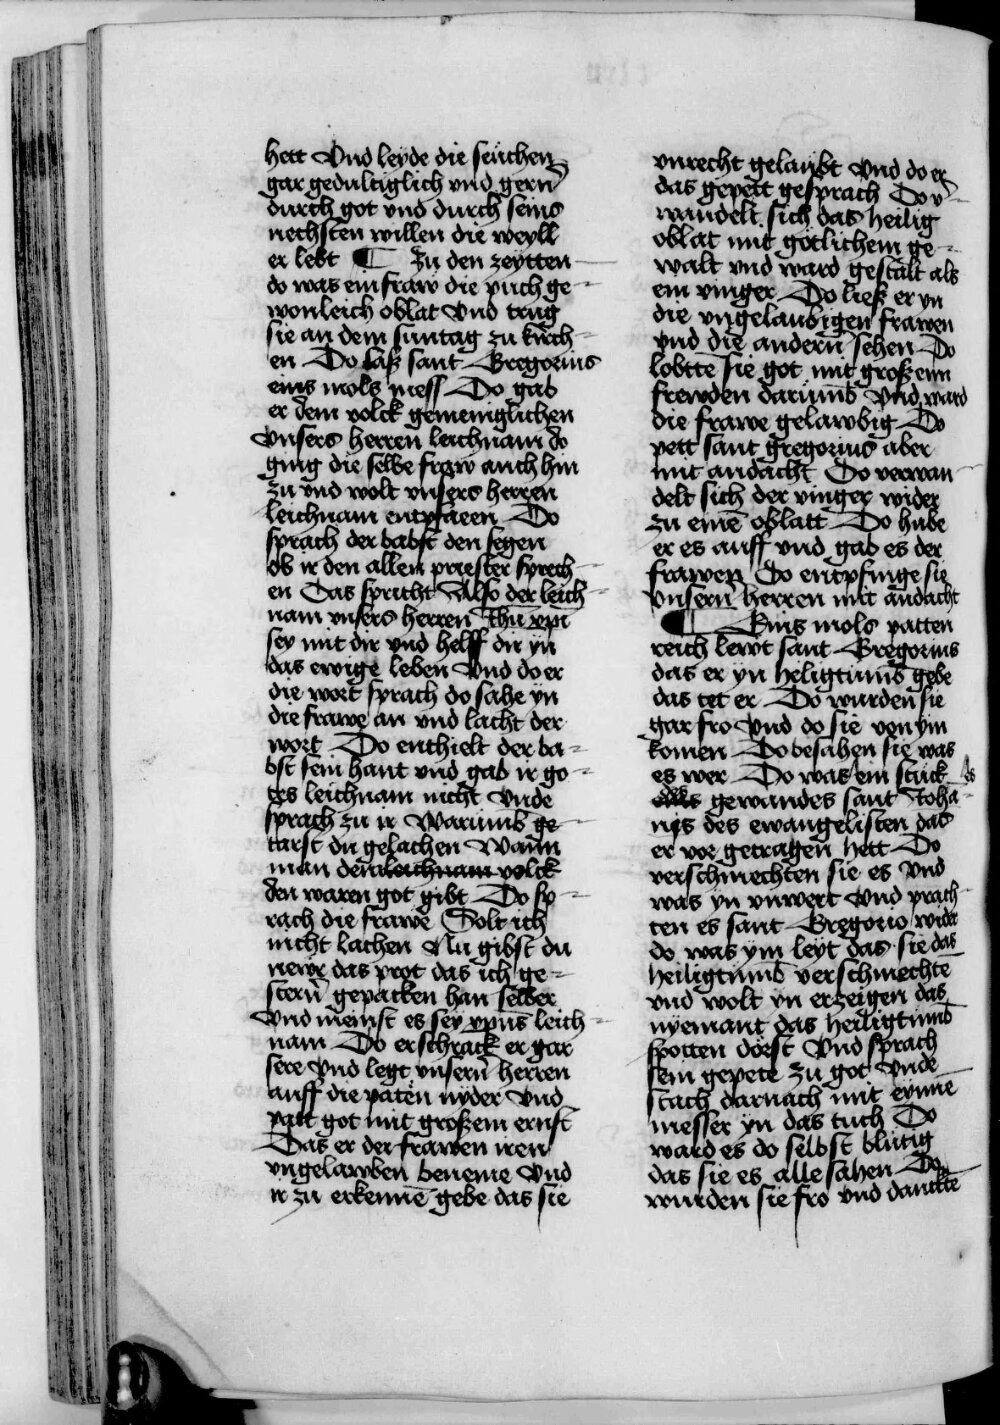 hett Vnd leyde die seuchen
gar gedultiglich vnd gern̄
durch got vnd durch seins
nechsten willen die weyll
er lebt ¶ Zu den zeytten
do was ein fraw die puch ge-
wonleich oblat Vnd trug
sie an dem suntag zu kirch-
en Do laß sant Gregorius
eins mols mess Do gab
er dem volck gemeniglichen
Vnsers herren leichnam do
ging die selbe fraw auch hin
zu vnd wolt vnsers herren
leichnam entpfaeen Do
sprach der babst den segen
ob ir den allen priester sprech-
en Das spricht Also der leich-
nam vnsers herren Ihū xp̄i
sey mit dir vnd helff dir yn
das ewige leben Vnd do er
die wort sprach do sahe yn
die frawe an vnd lacht der
wort Do enthielt der ba-
bst sein hant vnd gab ir go-
tes leichnam nicht Vnde
sprach zu ir Warumb ge-
tarst du gelachen Wann
man dem leichnam volck
den waren got gibt Do sp-
rach die frawe Solt ich
nicht lachen Nu gibst du
newr das prot das ich ge-
stern̄ gepacken han selber
Vnd meinst es sey xp̄us leich-
nam Do erschrack er gar
sere Vnd legt vnsern̄ herren
auff die paten nyder Vnd
patt got mit großem ernst
Das er der frawen iren
vngelawben beneme Vnd
ir zu erkennē gebe das sie
vnrecht gelaubt Vnd do er
das gepett gesprach Do v̄-
wandelt sich das heilig
oblat mit gotlichem ge-
walt vnd ward gestalt als
ein vinger Do ließ er yn
die vngelaubigen frawen
vnd die andern̄ sehen Do
lobtte sie got mit großenn
frewden darumb Vnd ward
die frawe gelawbig Do
pett sant gregorius aber
mit andacht Do verwan-
delt sich der vinger wider
zu einē oblatt Do hube
er es auff vnd gab es der
frawen Do entpfinge sie
Vnsern̄ herren mit andacht
¶ Eins mols patten
reich lewt sant Gregorius
das er yn heligtumb gebe
das tet er Do wurden sie
gar fro Vnd do sie von ym
komen Do besahen sie was
es wer Do was ein stuck des
gewandes sant Joha-
nis des ewangelisten das
er vor getragen hett Do
verschmechten sie es Vnd
was yn vnwert Vnd prach-
ten es sant Gregorio wider
do was ym leyt das sie das
heiligtumb verschmechte
vnd wolt yn erzeigen das
nyemant das heiligtumb
spotten dorst Vnd sprach
sein gepete zu got Vnde
stach darnach mit eynnē
messer yn das tuch Do
ward es do selbst blutig
das sie es alle sahen Do
wurden sie fro vnd danckte